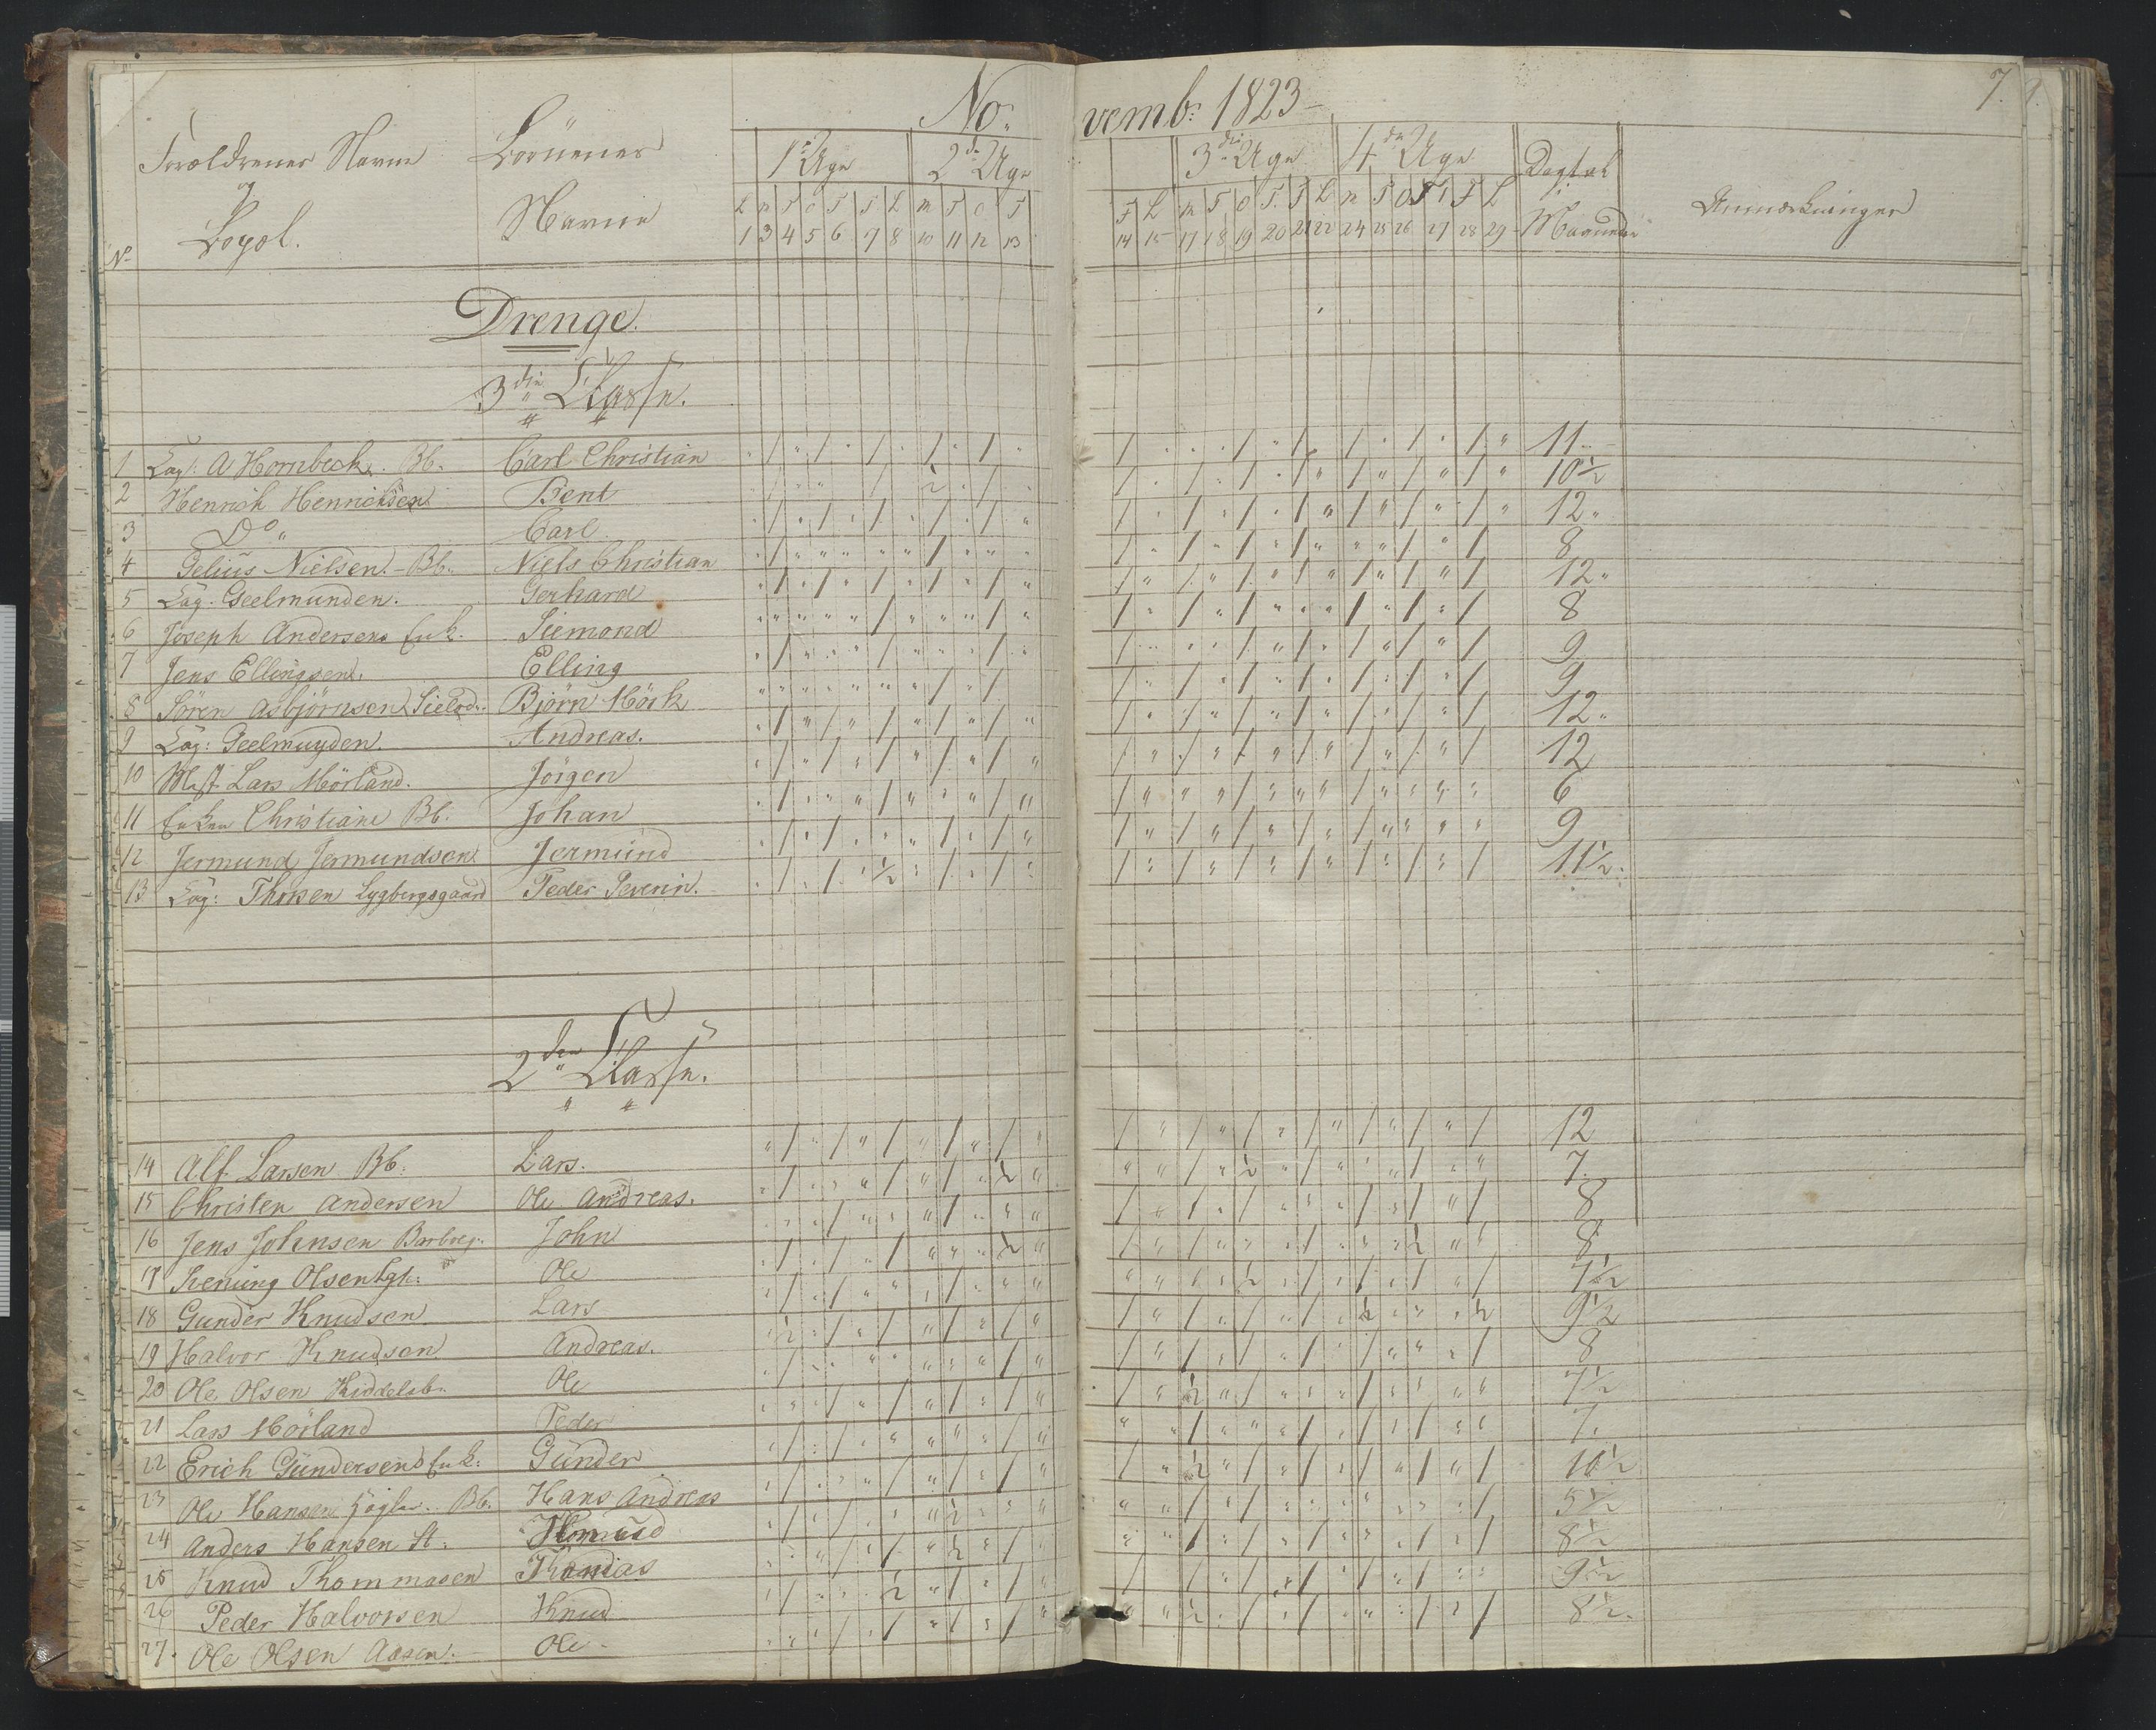 No: vemb: 1823
7.
Forældrenes Navne
og
Bopæl.
Børnenes
Navne
1e Uge
2den Uge
3die Uge
4de Uge
Dagtal
Maaneder
Anmærkninger
No
L M T O T F L M T O T
1 3 4 5 6 7 8 10 11 12 13
F L M T O T F L M T O T F L
14 15 17 18 19 20 21 22 24 25 26 27 28 29
Drenge.
3die Classe.
1 Cap: A Hornbeck. Bb. Carl Christian 11
2 Henrich Henrichsen Bent 10½
3 Do Carl 12
4 Gelius Nielsen. Bb. Niels Christian 8
5 Cap. Geelmuyden. Gerhard 12
6 Joseph Andersens Enk. Siemond 8
7 Jens Ellingsen. Elling 9
8 Sören Asbjörnsen Björn Mörk 9
9 Cap: Geelmuyden. Andreas. 12
10 Lars Mörland. Jörgen 12
11 Enken Christiane Bb. Johan 6
12 Jermund Jermundsen Jermund 9
13 Cap: Thorsen Lygbergsgaard Peder Severin. 11½
2den Classe.
14 Alf Larsen Bb: Lars. 12
15 Christen Andersen Ole Andreas. 7
16 Jens Johnsen John 8
17 Svening Olsen Ole 8
18 Gunder Knudsen Lars 7½
19 Halvor Knudsen Andreas. 9½
20 Ole Olsen Kiddelsb. Ole 8
21 Lars Mörland Peder 7½
22 Erich Gundersens Enk: Gunder 7.
23 Ole Hansen Bb. Hans Andreas 10½
24 Anders Hansen St: 5½
25 Knud Thommasen 8½
26 Peder Halvorsen Knud 9½
27. Ole Olsen Aasen. Ole 8½.